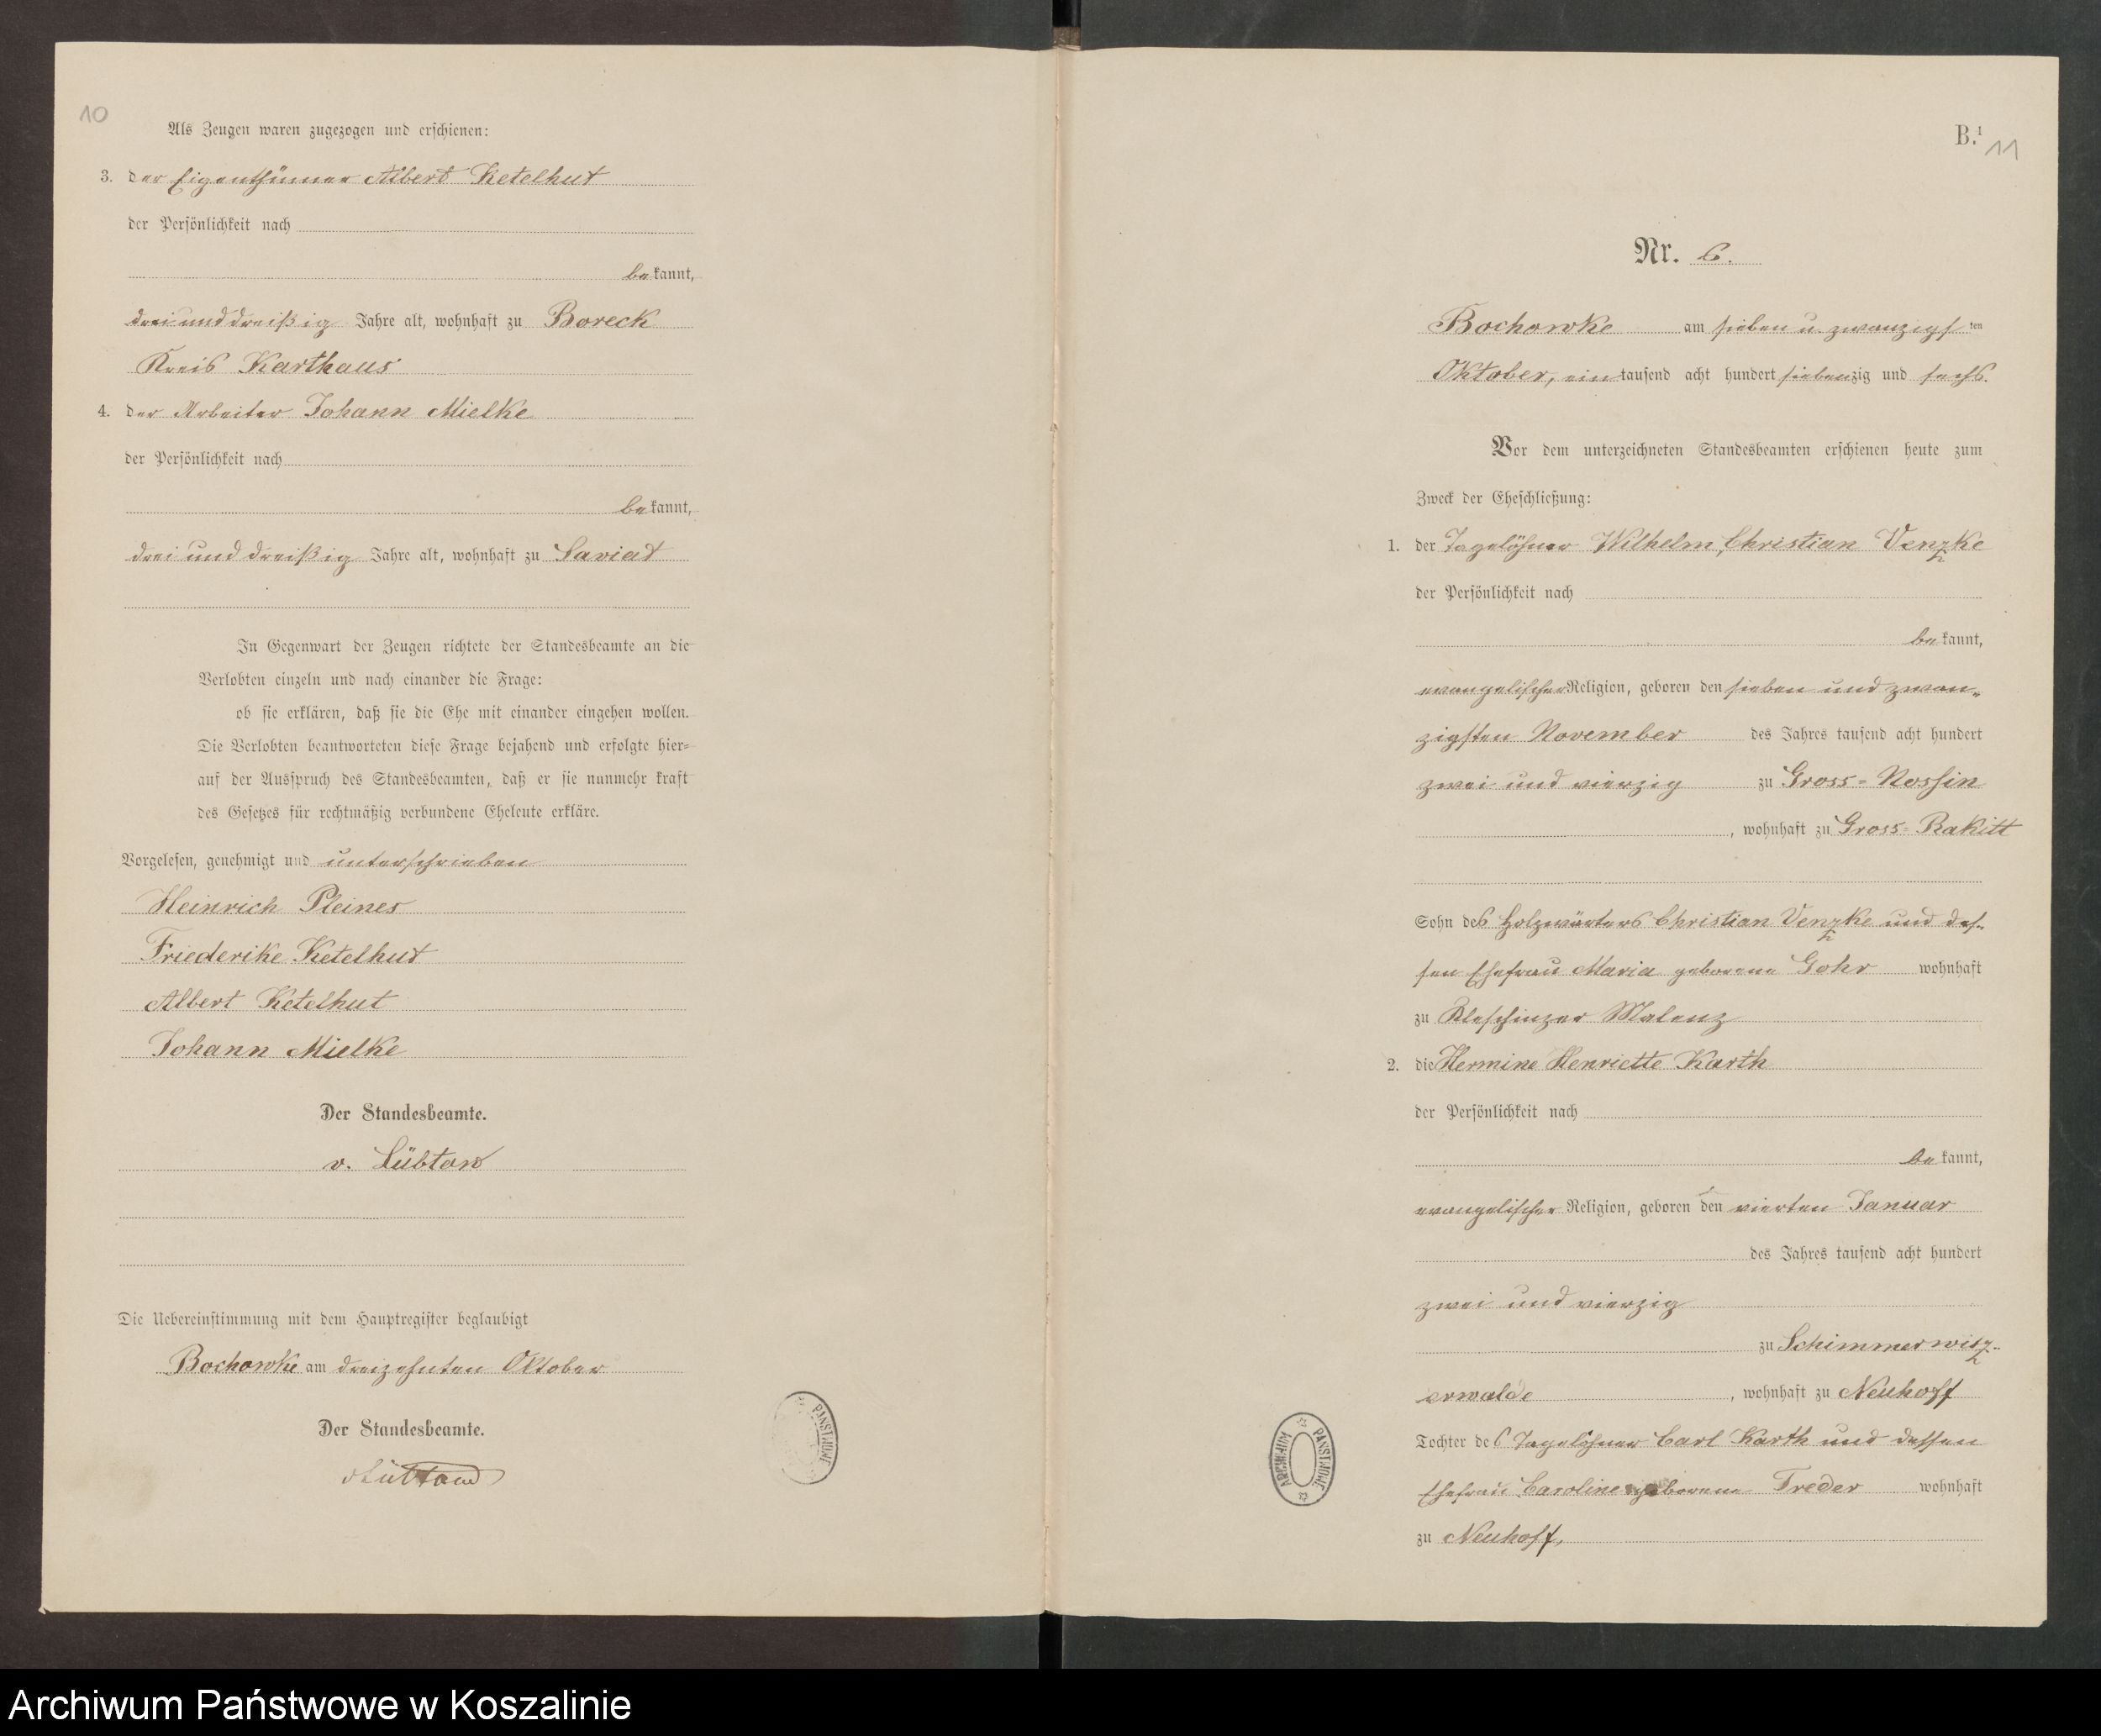 10
Als Zeugen waren zugezogen und erschienen:
3. der Eigenthümer Albert Ketelhut
der Persönlichkeit nach
bekannt,
drei und dreißig Jahre alt, wohnhaft zu Boreck
Kreis Karthaus
4. der Arbeiter Johann Mielke
der Persönlichkeit nach
bekannt,
drei und dreißig Jahre alt, wohnhaft zu Saviat
In Gegenwart der Zeugen richtete der Standesbeamte an die
Verlobten einzeln und nach einander die Frage:
ob sie erklären, daß sie die Ehe mit einander eingehen wollen.
Die Verlobten beantworteten diese Frage bejahend und erfolgte hier-
auf der Ausspruch des Standesbeamten, daß er sie nunmehr kraft
des Gesetzes für rechtmäßig verbundene Eheleute erkläre.
Vorgelesen, genehmigt und unterschrieben
Heinrich Pleines
Friederike Ketelhut
Albert Ketelhut
Johann Mielke
Der Standesbeamte.
v. Lübtow
Die Uebereinstimmung mit dem Hauptregister beglaubigt
Bochowke am dreizehnten Oktober
Der Standesbeamte.
vLübtow
PAŃSTWOWE
B.¹
11
Nr. 6.
Bochowke am sieben u. zwanzigsten
Oktober, ein tausend acht hundert siebenzig und sechs.
Vor dem unterzeichneten Standesbeamten erschienen heute zum
Zweck der Eheschließung:
1. der Tagelöhner Wilhelm, Christian Venzke
der Persönlichkeit nach
bekannt,
evangelischer Religion, geboren den sieben und zwan-
zigsten November des Jahres tausend acht hundert
zwei und vierzig zu Gross-Nossin
, wohnhaft zu Gross-Rakitt
Sohn des Holzwärters Christian Venzke und des-
sen Ehefrau Maria geborene Gohr wohnhaft
zu Kleschinzer Malenz
2. die Hermine Henriette Karth
der Persönlichkeit nach
bekannt,
evangelischer Religion, geboren den vierten Januar
des Jahres tausend acht hundert
zwei und vierzig
zu Schimmerwitz-
erwalde, wohnhaft zu Neuhoff
Tochter des Tagelöhner Carl Karth und dessen
Ehefrau Caroline geborene Treder wohnhaft
zu Neuhoff,
ARCHIWUM PAŃSTWOWE
Archiwum Państwowe w Koszalinie